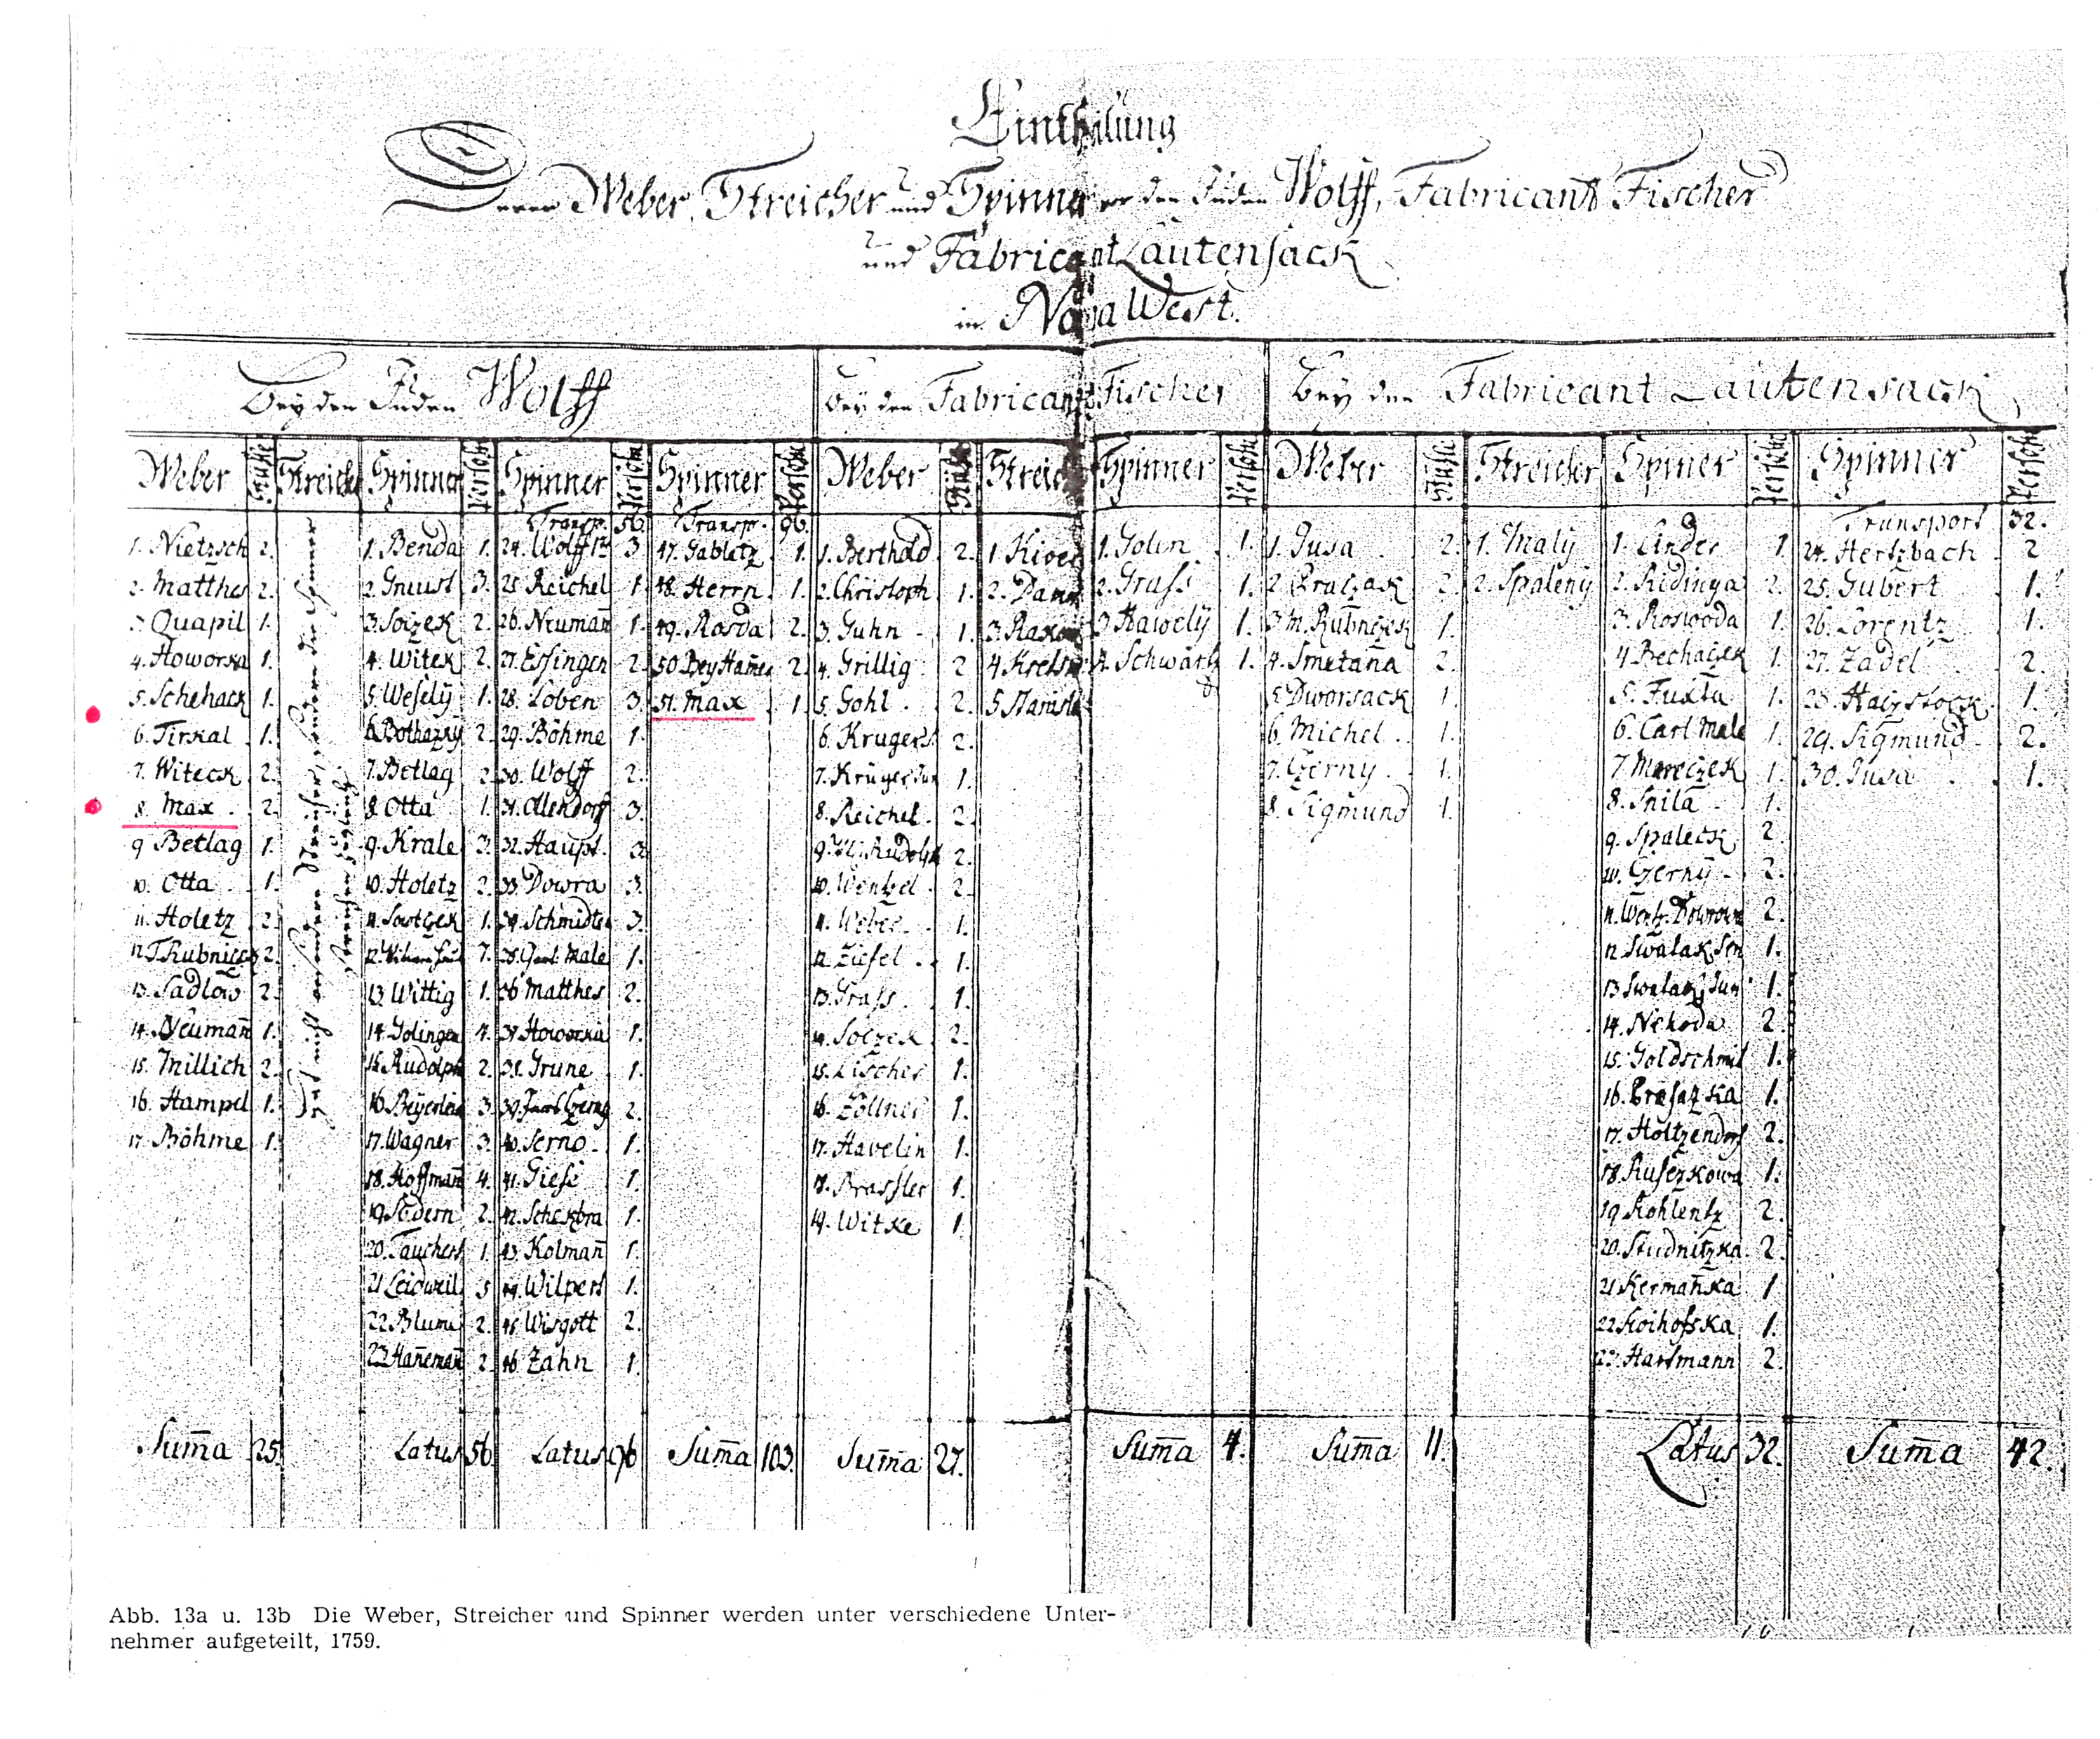 Eintheilung
Derer Weber, Streicher und Spinner vor den Juden Wolff, Fabricant Fischer
und Fabricant Lautensack
in Nova West.
Bey den Juden Wolff
Weber Stühle
1. Nietzsch 2.
2. Matthes 2.
3. Quapil 1.
4. Howorka 1.
5. Scheback 1.
6. Tirkal 1.
7. Witeck 2.
8. Max 2.
9 Betlag 1.
10. Otta 1.
11. Holetz 2.
12 2.
13. Sadlow 2.
14. Neumañ 1.
15. Millich 2.
16. Hampel 1.
17. Böhme 1.
Sum̄a 25.
Streicher
Spinner Persohn
1. Benda 1.
2. Gnust 3.
3. Soizek 2.
4. Witek 2.
5. Weselÿ 1.
6. 2.
7. Betlag 2.
8 Otta 1.
9. Krale 3.
10. Holetz 2.
11. 1.
12. 7.
13 Wittig 1.
14. Golingen 4.
15. Rudolph 2.
16 3.
17. Wagner 3.
18. Hoffmañ 4.
19. 2.
20. Tauchert 1.
21 5
22 Blume 2.
23 Hañemañ 2.
Latus 56.
Spinner Persohn
Transp. 56.
24. Wolff 3.
25 Reichel 1.
26. Neumañ 1.
27. Essingen 2.
28. Loben 3.
29. Böhme 1.
30. Wolff 2.
31. Ollendorff 3.
32. Haupt 3.
33. Dowra 3.
34. 3.
35. Male 1.
36 Matthes 2.
37 Howorka 1.
38. Grune 1.
39. 2.
40. Serno 1.
41. Giese 1.
42. 1.
43. Kolmañ 1.
44. Wilpert 1.
45. Wisgott 2.
46 Zahn 1.
Latus 96
Spinner Persohn
Transp. 96.
47. Gabletz 1.
48. Herrn 1.
49. Rasda 2.
50 2.
51. Max 1.
Sum̄a 103.
Bey den Fabricant Fischer
Weber Stühle
1. Berthold 2.
2. Christoph 1.
3. Guhn 1.
4. Grillig 2
5. Gohl 2.
6. Krüger 2.
7. Krüger Jun 1.
8. Reichel 2.
9. Rudolph 2.
10. Wentzel 2.
11. Weber 1.
12. Ziesel 1.
13. Grass 1.
14. Solzek 2.
15. Tischer 1.
16. Zöllner 1.
17. Havelin 1.
18. Brassler 1.
19. Witke 1.
Sum̄a 27.
Streicher
1.
2.
3.
4.
5
Spinner Persohn
1. Golin 1.
2. Grass 1.
3 Hawelÿ 1.
4. Schwartz 1.
Sum̄a 4.
Bey den Fabricant Lautensack
Weber Stühle
1. Jusa 2.
2 2.
3 M. Rubnizek 1.
4. Smetaña 2.
5. Dworsack 1.
6. Michel 1.
7. Czerny 1.
8. Sigmund 1.
Sum̄a 11.
Streicher
1. Malÿ
2. Spalenÿ
Spiner Persohn
1. Linder 1
2. Ridinga 2.
3. Roswoda 1.
4 Bechaczek 1.
5. Fuxta 1.
6. Carl Male 1.
7 Mareczek 1.
8. Snila 1.
9. Spaleck 2.
10. Czernÿ 2.
11. 2.
12 Swalak Sen 1.
13 Swalak Jun 1.
14. Nekoda 2.
15. Goldschmit 1.
16. 1.
17. Holtzendorf 2.
18. 1.
19 Kohlentz 2.
20. Studnitzka 2.
21 Kermañka 1
22 Koihofska 1.
23. Hartmann 2.
Latus 32.
Spinner Persohn
Transport 32.
24. Hertzbach 2
25. Gubert 1.
26. Lorentz 1.
27. Zadel 2.
28. 1.
29. Sigmund 2.
30. Jusa 1.
Sum̄a 42.
Abb. 13a u. 13b Die Weber, Streicher und Spinner werden unter verschiedene Unter-
nehmer aufgeteilt, 1759.